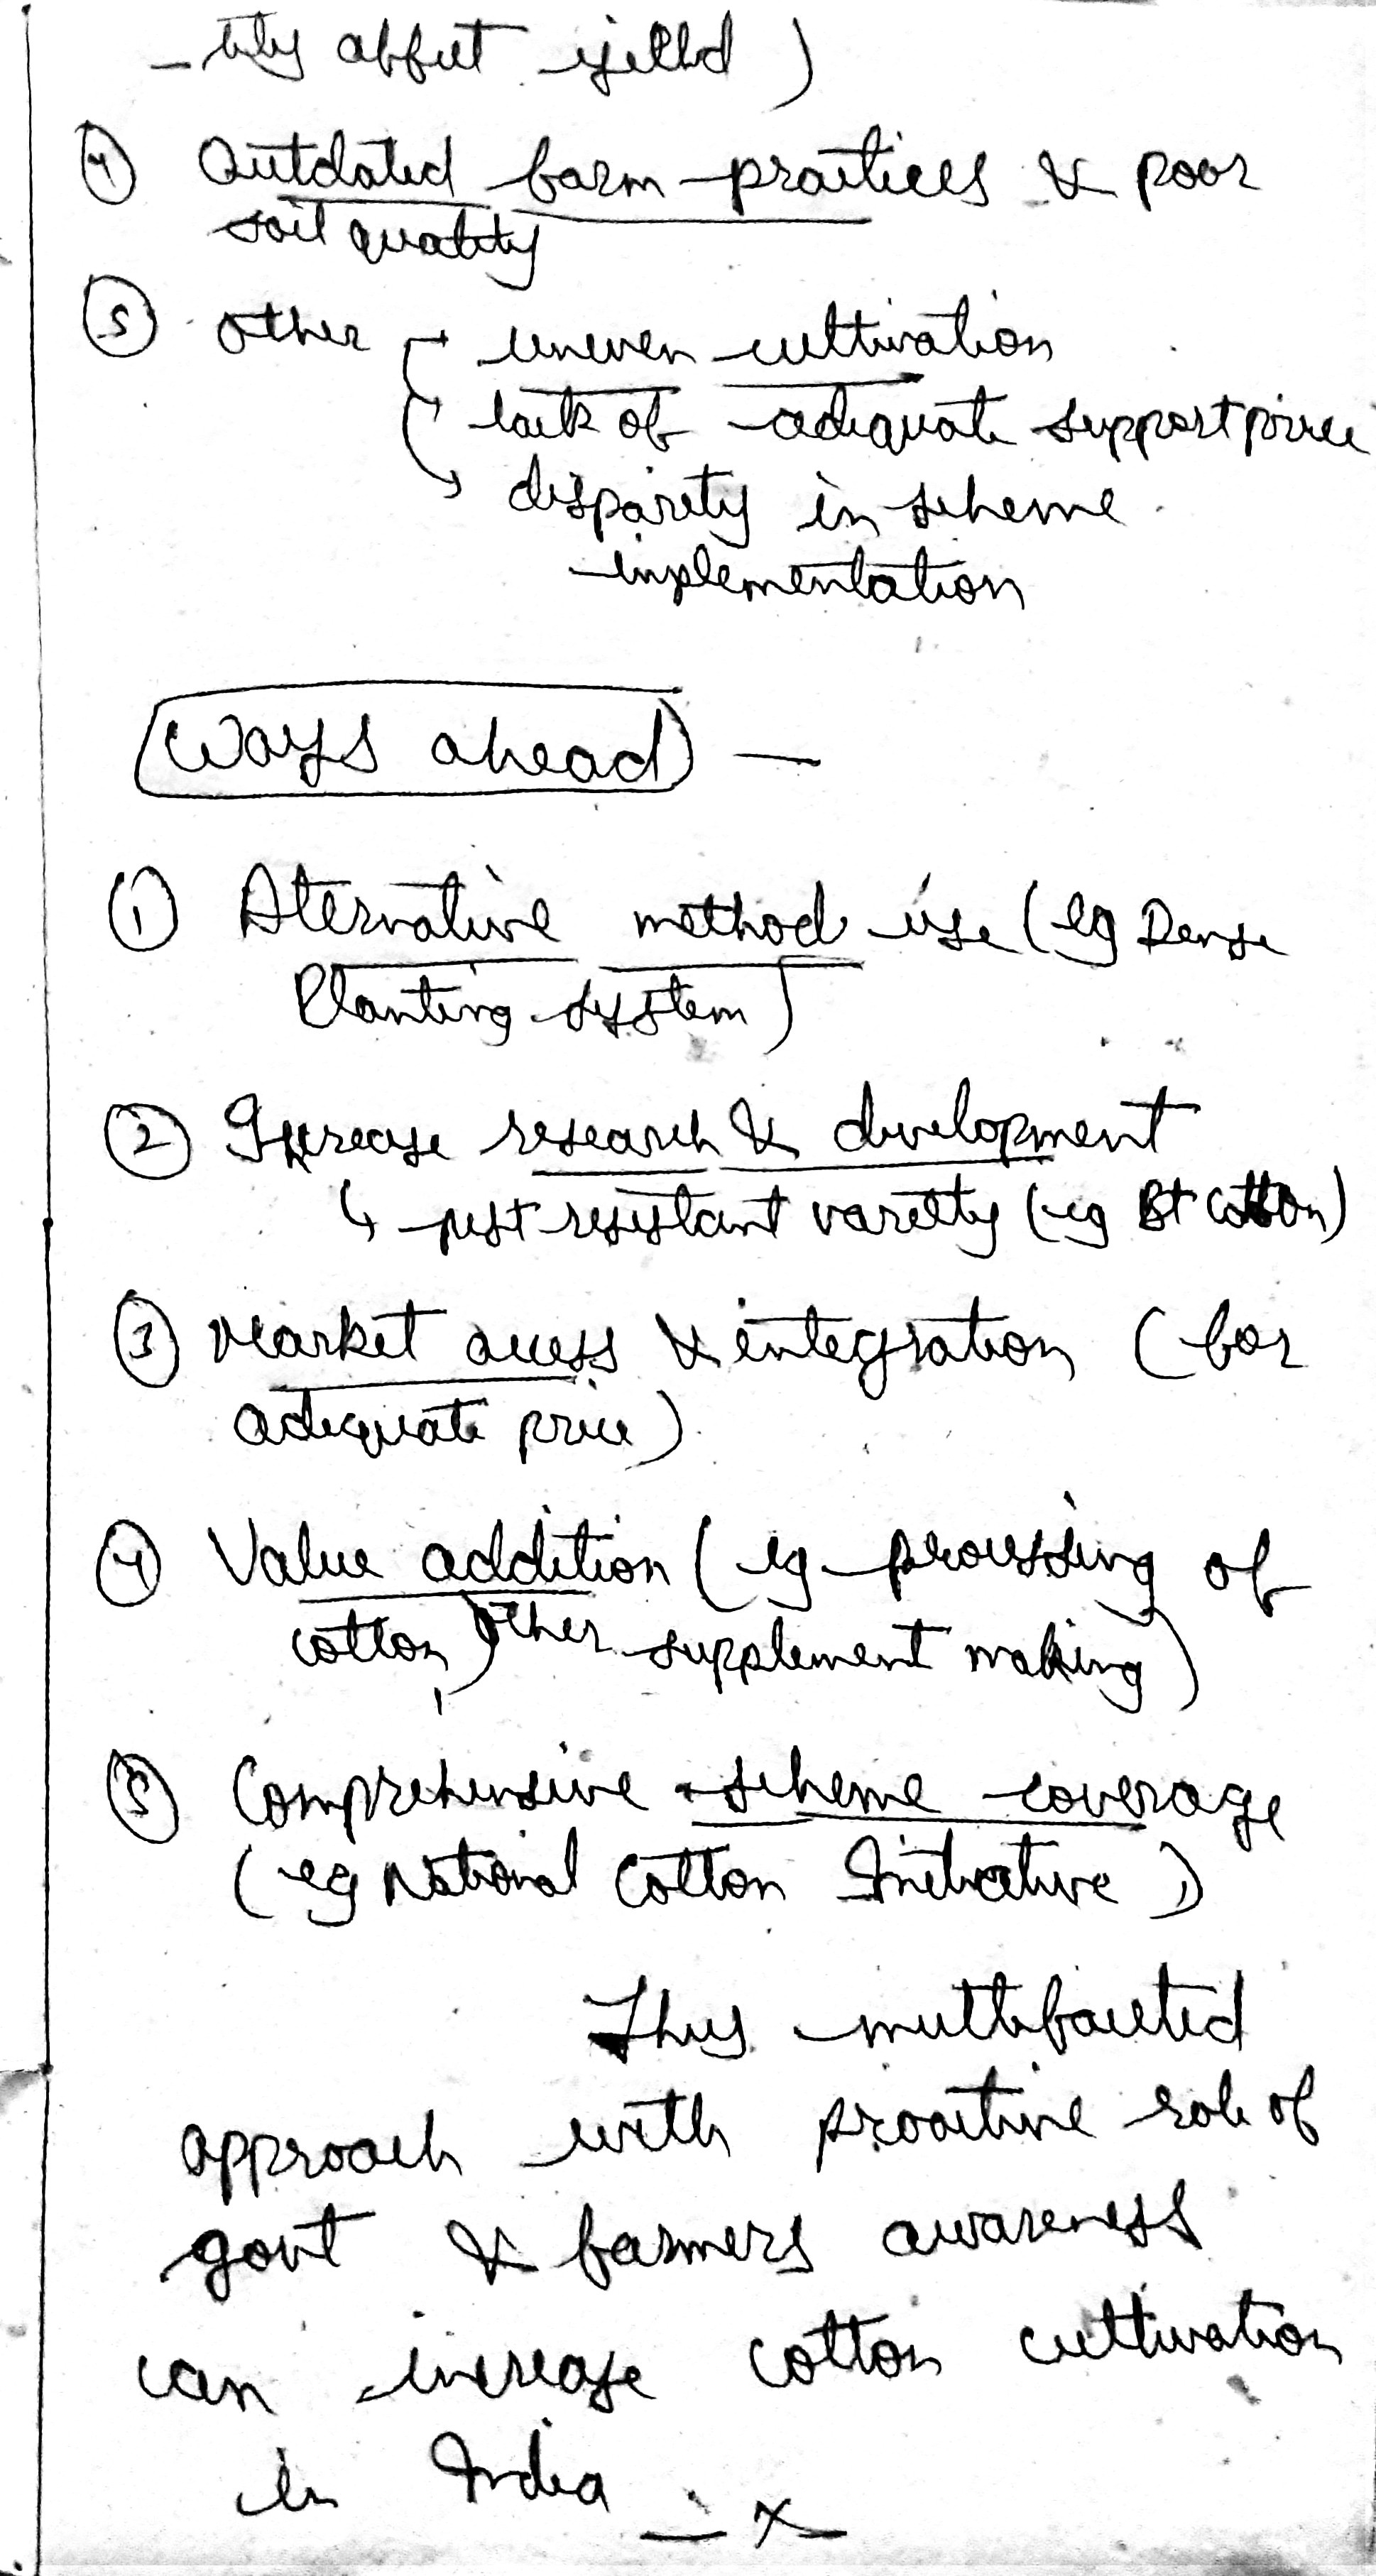 -tily affect yeild)
④ Outdated farm practices & poor
soil quality
⑤ other → uneven cultivation
→ lack of adequate support price
→ disparity in scheme
implementation
Ways ahead —
① Alternative method use (eg Dense
Planting system)
② Increase research & development
↳ pest resistant variety (eg Bt cotton)
③ Market access & integration (for
adequate price)
④ Value addition (eg processing of
cotton, other supplement making)
⑤ Comprehensive scheme coverage
(eg National Cotton Initiative)
Thus multifaceted
approach with proactive role of
govt & farmers awareness
can increase cotton cultivation
in India
— x —